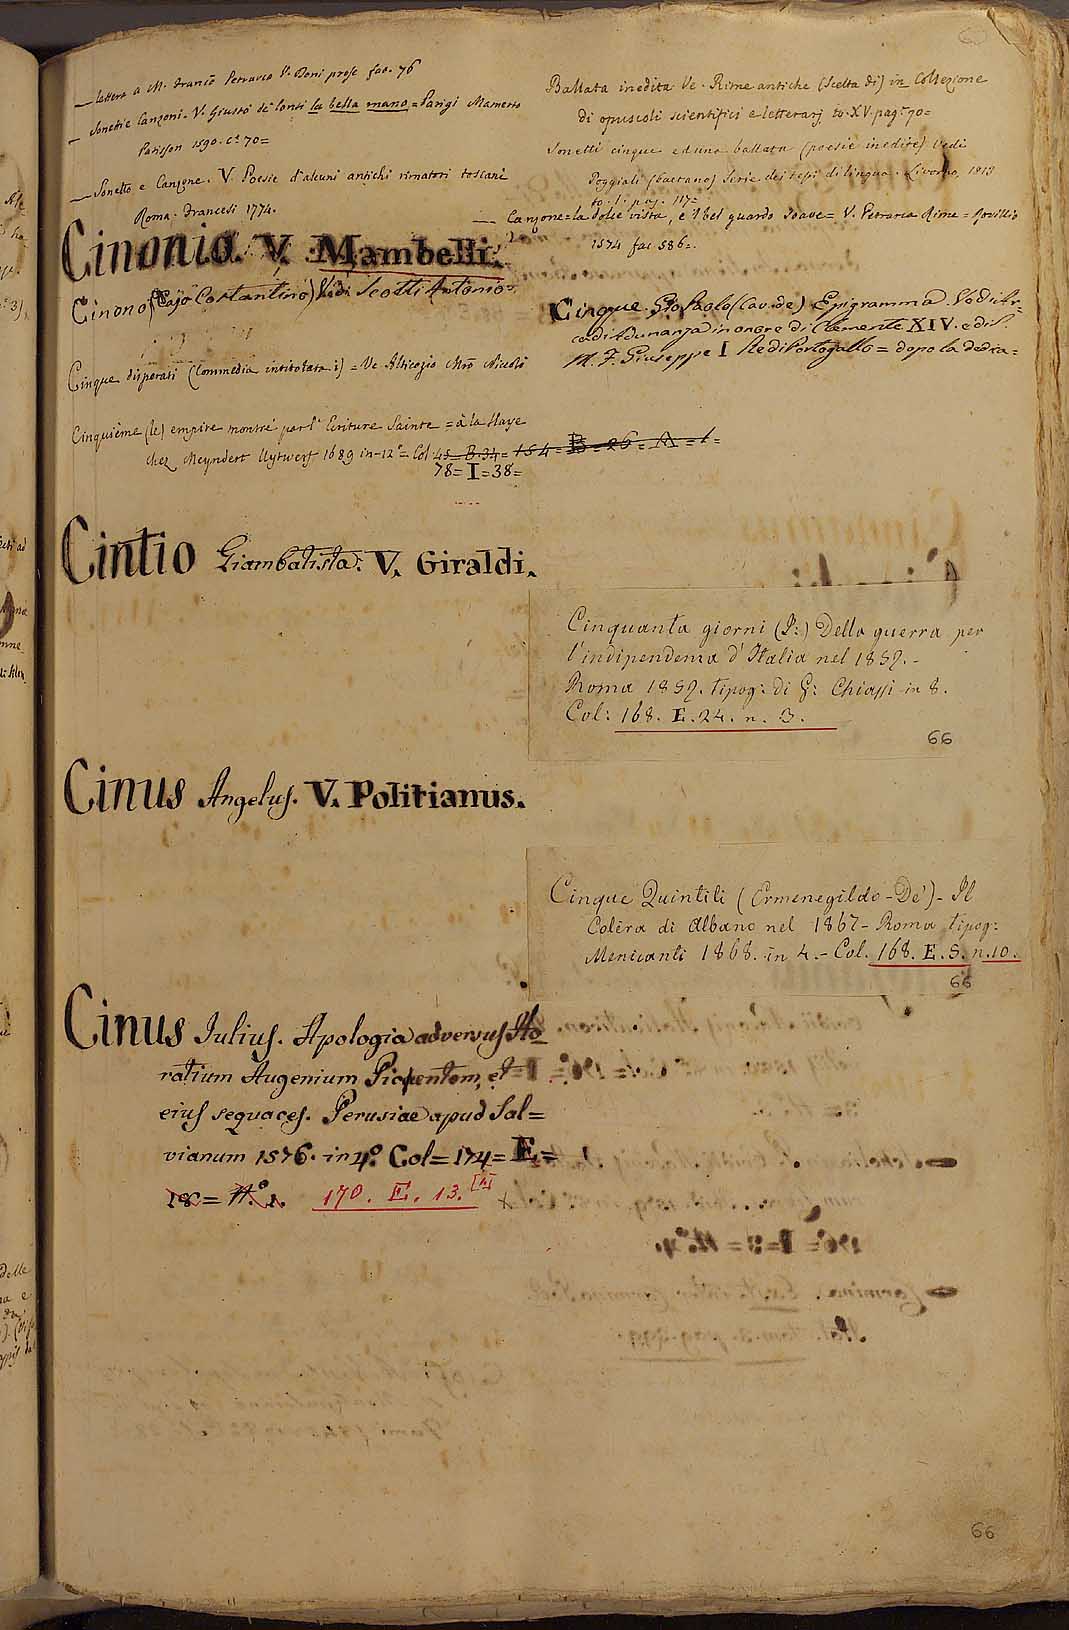 — lettera a M. Franco Petrarca V. Doni prose fac. 76
— Sonetti e Canzoni. V. Giusto de' Conti la bella mano = Parigi Mamerto
Patisson 1590. c.ª 70=
— Sonetto e Canzone. V. Poesie d'alcuni antichi rimatori toscani
Roma. Francesi 1774.
Cinonio. V. Mambelli.
Cinono (Cajo Costantino) Vedi Scotti Antonio=
Cinque disperati (Commedia intitolata i) = Ve Alticozio Mro Nicolò
Cinquième (le) empire montré par l'Ecriture Sainte = à la Haye
chez Meyndert Uytwerf 1689 in-12° = Col 45 B. 34 = 154 = B = 26 = A = 1 =
78 = I = 38=
Cintio Giambatista. V. Giraldi.
Cinus Angelus. V. Politianus.
Cinus Julius. Apologia adversus Ho
ratium Augenium Picentem, et
eius sequaces. Perusiae apud Sal=
vianum 1576. in 4.° Col = 174 = E =
18 = N.° 1. 170. E. 13. [4] x
Ballata inedita Ve. Rime antiche (Scelta di) in Collezione
di opuscoli scientifici e letterarj to. XV. pag.e 70=
Sonetti cinque ed una ballata (poesie inedite) Vedi
Poggiali (Gaetano) Serie dei testi di lingua. Livorno, 1813
to. 1. pag. 117=
— Canzone = la dolce vista, e 'l bel guardo soave = V. Petrarca Rime = Rovillio
1574 fac 586=
Cinque Gio Paolo (Cav. de) Epigramma. Vedi Ar=
cadi Adunanza in onore di Clemente XIV. e di S.
M. F. Giuseppe I Re di Portogallo = dopo la dedica=
Cinquanta giorni (I:) Della guerra per
l'indipendenza d'Italia nel 1859. -
Roma 1859. tipog: di G: Chiassi in 8.
Col: 168. E. 24. n. 3.
66
Cinque Quintili (Ermenegildo - De') - Il
Colèra di Albano nel 1867 - Roma tipog:
Menicanti 1868. in 4. - Col. 168. E. S. n. 10.
66
66